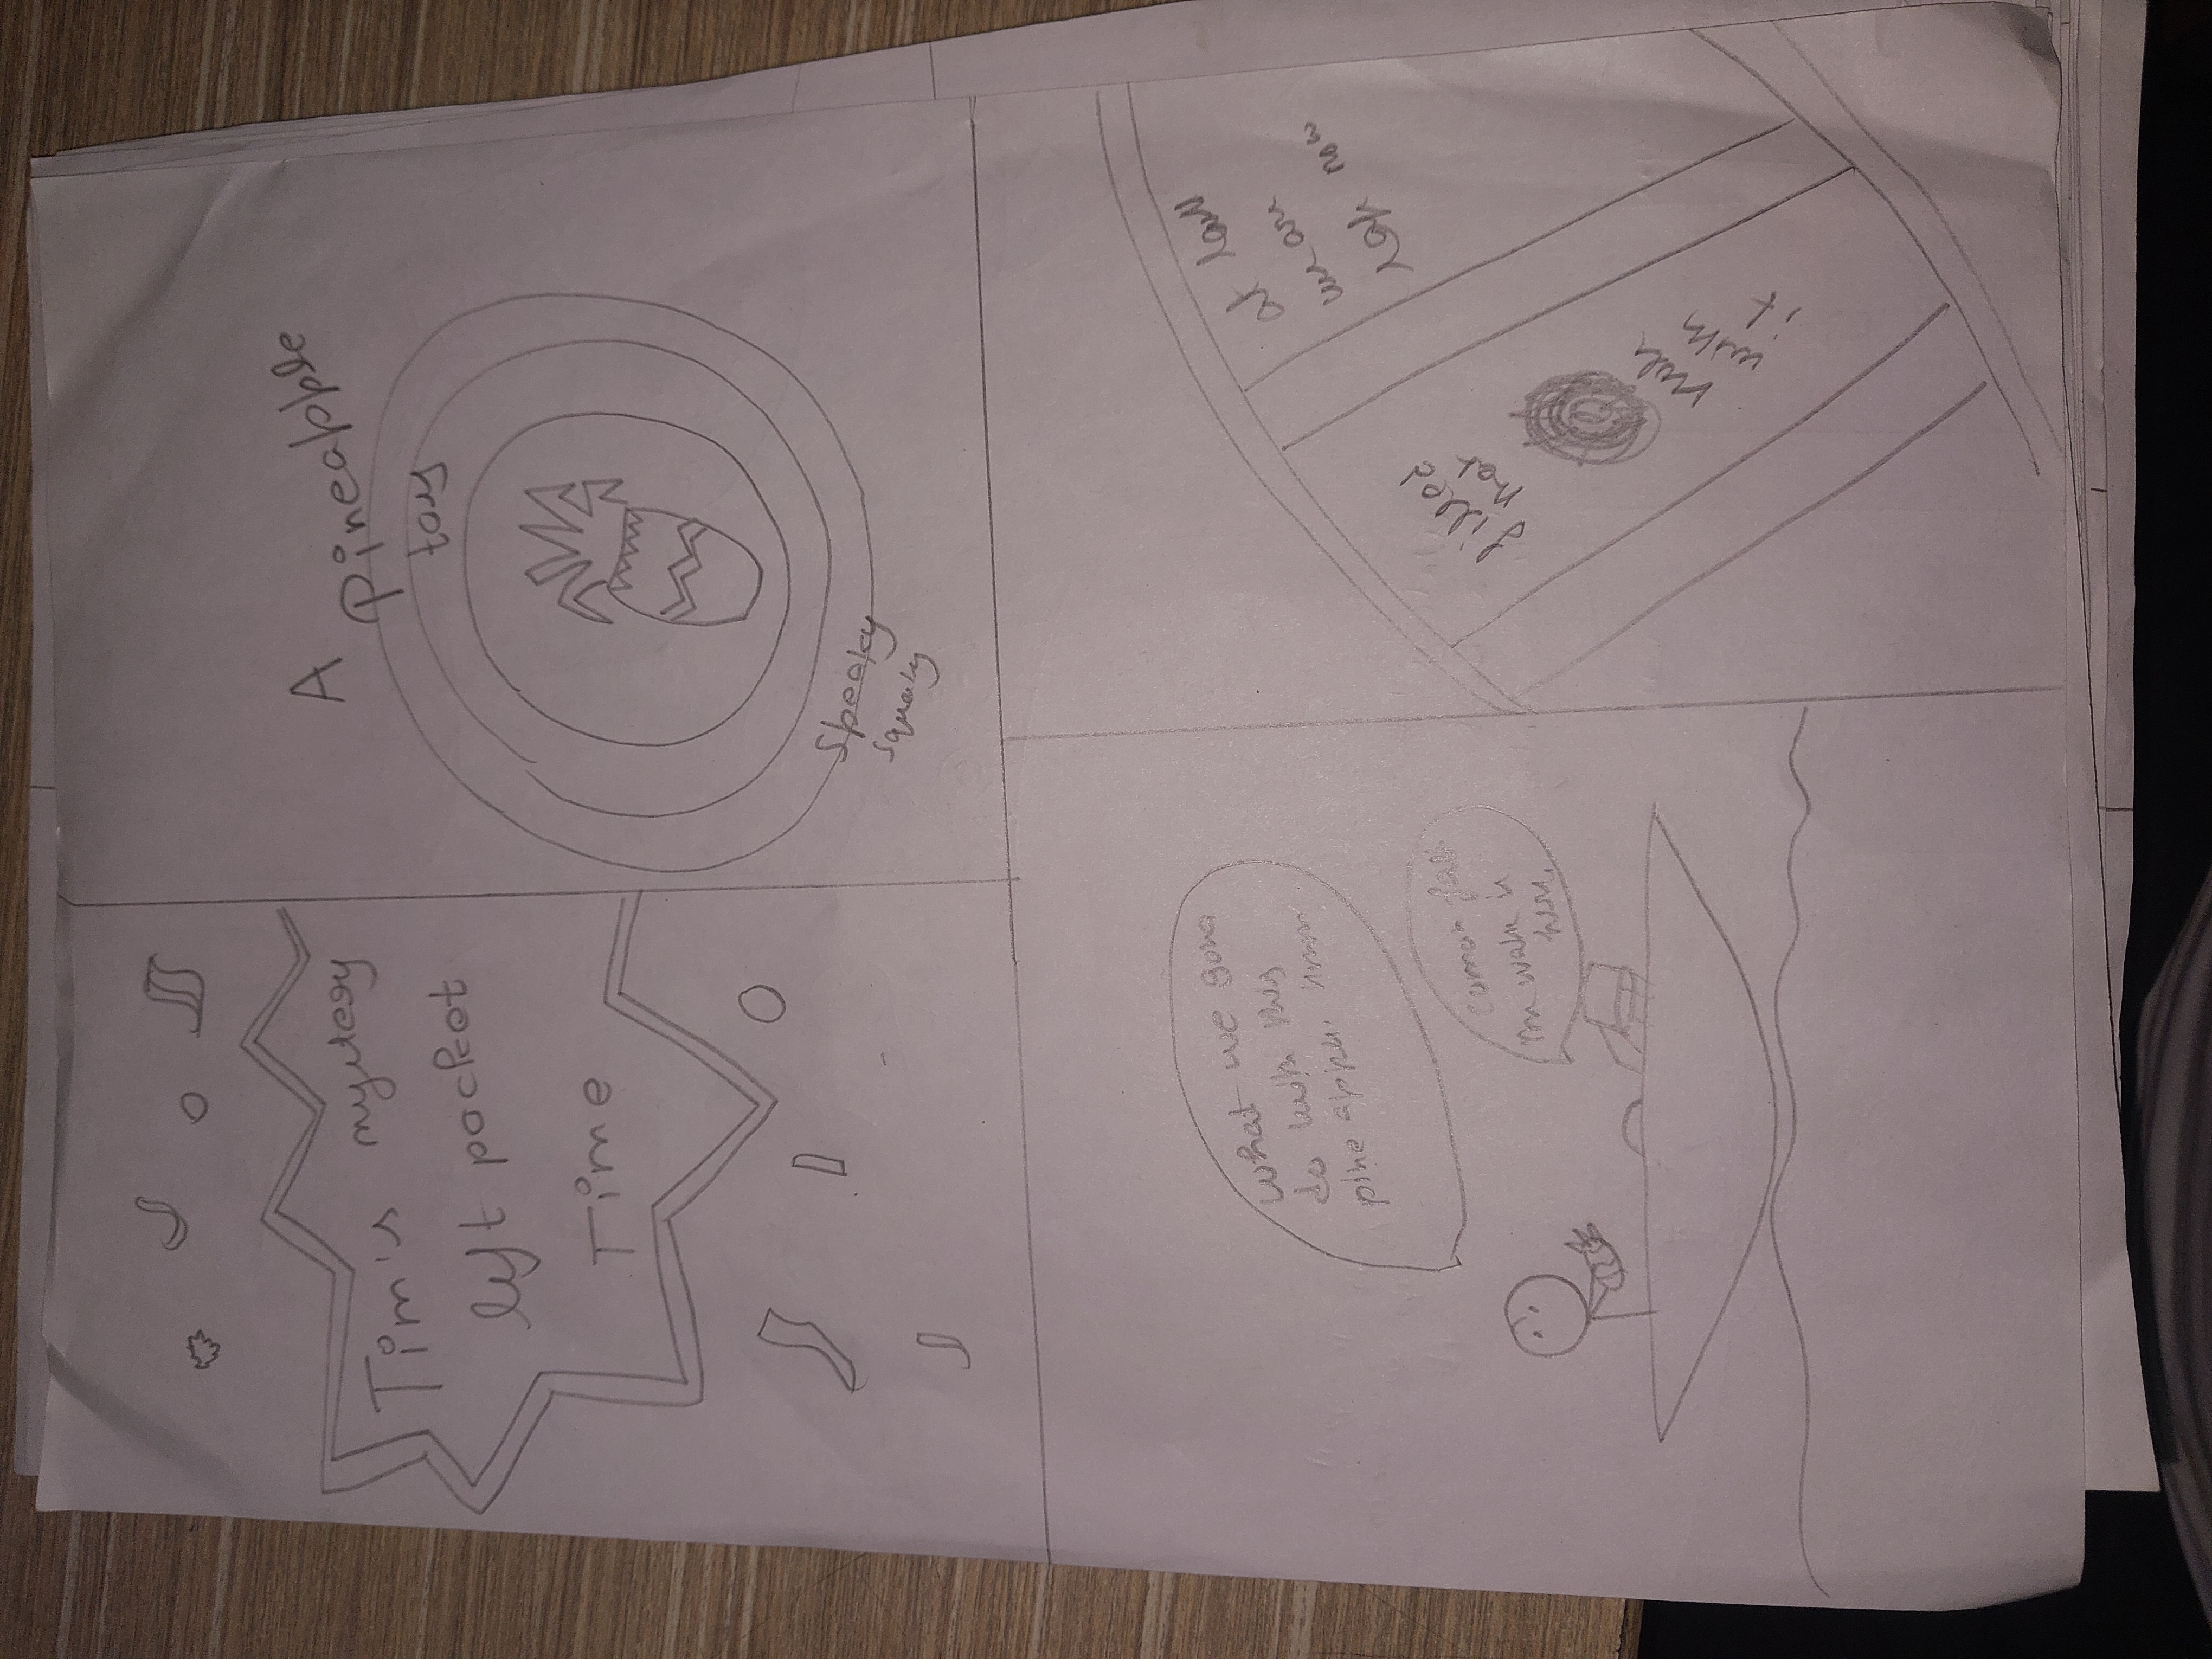 Tim's mystery
left pocket
Time
A
Pineapple
toy
Speaky
squeaky
What we gona
do with this
pine apple. Hmm.
comon fast
the water is
here.
filled
that
hole
with
it
at last
we are
safe now